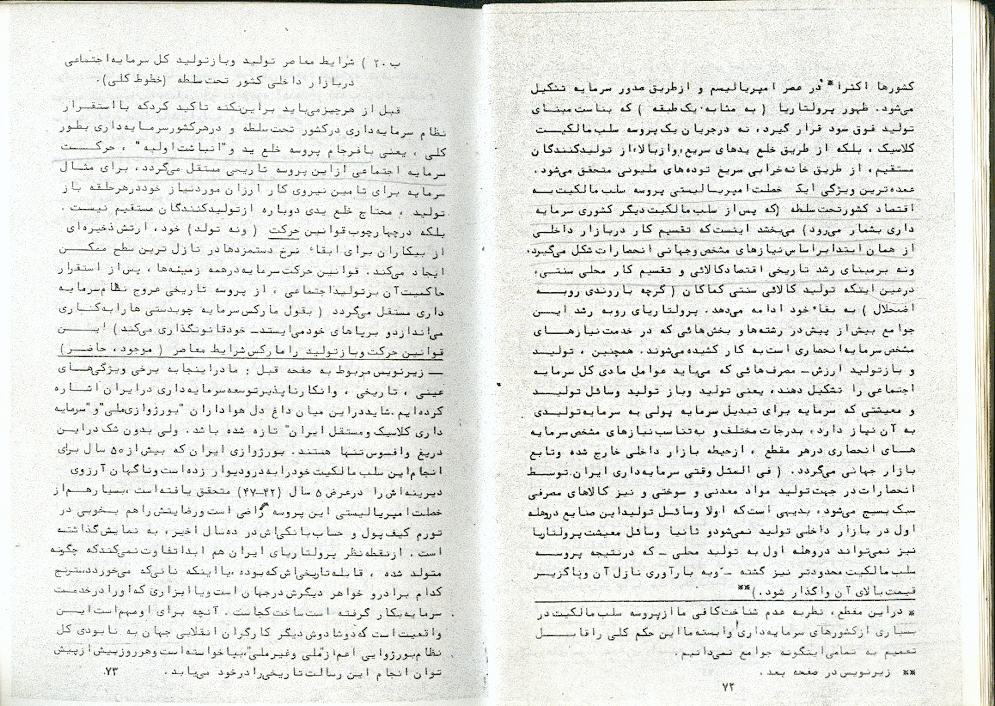 کشورها اکثرا* در عصر امپریالیسم و ازطریق صدور سرمایه تشکیل
می‌شود. ظهور پرولتاریا ( به مثابه یک طبقه ) که بناست مبنای
تولید فوق سود قرار گیرد، نه درجریان یک پروسه سلب مالکیت
کلاسیک ، بلکه از طریق خلع یدهای سریع ازبالا، از تولیدکنندگان
مستقیم ، از طریق خانه‌خرابی سریع توده‌های ملیونی متحقق می‌شود.
عمده‌ترین ویژگی ایکه خصلت امپریالیستی پروسه سلب مالکیت به
اقتصاد کشورتحت سلطه (که پس از سلب مالکیت دیگر کشوری سرمایه
داری بشمار می‌رود) می‌بخشد اینست که تقسیم کار دربازار داخلی
از همان ابتدا براساس نیازهای مشخص وجهانی انحصارات شکل می‌گیرد،
ونه برمبنای رشد تاریخی اقتصادکالائی و تقسیم کار محلی سنتی،
درعین اینکه تولید کالائی سنتی کماکان ( گرچه باروندی روبه
اضمحلال ) به بقاء خود ادامه می‌دهد. پرولتاریای روبه رشد این
جوامع بیش از پیش در رشته‌ها و بخش‌هائی که در خدمت نیازهای
مشخص سرمایه انحصاری است به کار کشیده می‌شوند. همچنین ، تولید
و بازتولید ارزش- مصرف‌هائی که می‌باید عوامل مادی کل سرمایه
اجتماعی را تشکیل دهند، یعنی تولید وباز تولید وسائل تولید
و معیشتی که سرمایه برای تبدیل سرمایه پولی به سرمایه‌تولیدی
به آن نیاز دارد، بدرجات مختلف و به‌تناسب نیازهای مشخص سرمایه
های انحصاری درهر مقطع ، ازحیطه بازار داخلی خارج شده وتابع
بازار جهانی می‌گردد. ( فی المثل وقتی سرمایه‌داری ایران توسط
انحصارات در جهت‌تولید مواد معدنی و سوختی و نیز کالاهای مصرفی
سبک بسیج می‌شود، بدیهی است که اولا وسائل تولیداین صنایع دروهله
اول در بازار داخلی تولید نمی‌شودو ثانیا وسائل معیشت پرولتاریا
نیز نمی‌تواند دروهله اول به تولید محلی - که درنتیجه پروسه
سلب مالکیت محدودتر نیز گشته - وبه بارآوری نازل آن وناگزیر
قیمت‌بالای آن واگذار شود.)**
* دراین مقطع، نظربه عدم شناخت‌کافی ما ازپروسه سلب مالکیت در
بسیاری ازکشورهای سرمایه‌داری وابسته ما این حکم کلی را قابل
تعمیم به تمامی اینگونه جوامع نمی‌دانیم.
** زیرنویس در صفحه بعد .
۷۲
ب-۲۰ ) شرایط معاصر تولید وبازتولید کل سرمایه‌اجتماعی
دربازار داخلی کشور تحت سلطه (خطوط کلی).
قبل از هرچیزمی‌باید براین‌نکته تاکید کردکه بااستقرار
نظام سرمایه‌داری درکشور تحت سلطه و درهرکشورسرمایه‌داری بطور
کلی ، یعنی بافرجام پروسه خلع ید و"انباشت اولیه" ، حرکت
سرمایه اجتماعی ازاین پروسه تاریخی مستقل می‌گردد، برای مثال
سرمایه برای تامین نیروی کار ارزان موردنیاز خوددرهرحلقه باز
تولید ، محتاج خلع یدی دوباره ازتولیدکنندگان مستقیم نیست .
بلکه درچهارچوب قوانین حرکت (ونه تولد) خود، ارتش ذخیره‌ای
از بیکاران برای ابقاء نرخ دستمزدها در نازل ترین سطح ممکن
ایجاد می‌کند. قوانین حرکت سرمایه درهمه زمینه‌ها ، پس از استقرار
حاکمیت آن برتولیداجتماعی ، از پروسه تاریخی عروج نظام سرمایه
داری مستقل می‌گردد ( بقول مارکس سرمایه چوبدستی هارابه‌کناری
می‌اندازدو برپاهای خودمی‌ایستد- خودقانونگذاری می‌کند) این
قوانین حرکت وبازتولید را مارکس شرایط معاصر ( موجود ، حاضر)
- زیرنویس مربوط به صفحه قبل : مادراینجابه برخی ویژگی‌های
عینی ، تاریخی ، وانکارناپذیرتوسعه سرمایه‌داری درایران اشاره
کرده‌ایم. شایددراین میان داغ دل هواداران "بورژوازی‌ملی"و"سرمایه
داری کلاسیک ومستقل ایران" تازه شده باشد. ولی بدون شک دراین
دریغ وافسوس تنها هستند. بورژوازی ایران که بیش از ۵۰ سال برای
انجام این سلب مالکیت خودرابه درودیوار زده است وناگهان آرزوی
دیرینه‌اش را درعرض ۵ سال (۴۲-۴۷) متحقق یافته است ،بسیارهم‌از
خصلت امپریالیستی این پروسه راضی است ورضایتش را هم بخوبی در
تورم کیف‌پول و حساب بانکی‌اش در ده‌سال اخیر، به نمایش گذاشته
است . ازنقطه‌نظر پرولتاریای ایران هم ابداتفاوت نمی‌کندکه چگونه
متولد شده ، قابله تاریخی‌اش که‌بوده ،یااینکه نانی‌که می‌خورددسترنج
کدام برادرو خواهر دیگرش درجهان است ویاابزاری که اورادرخدمت
سرمایه‌بکار گرفته است ساخت کجاست . آنچه برای اومهم‌است این
واقعیت است که‌دوشادوش دیگر کارگران انقلابی جهان به نابودی کل
نظام‌بورژوایی اعم‌از"ملی وغیرملی"،بپاخواسته است وهرروزبیش‌ازپیش
توان انجام این رسالت تاریخی‌را درخود می‌یابد .
۷۳